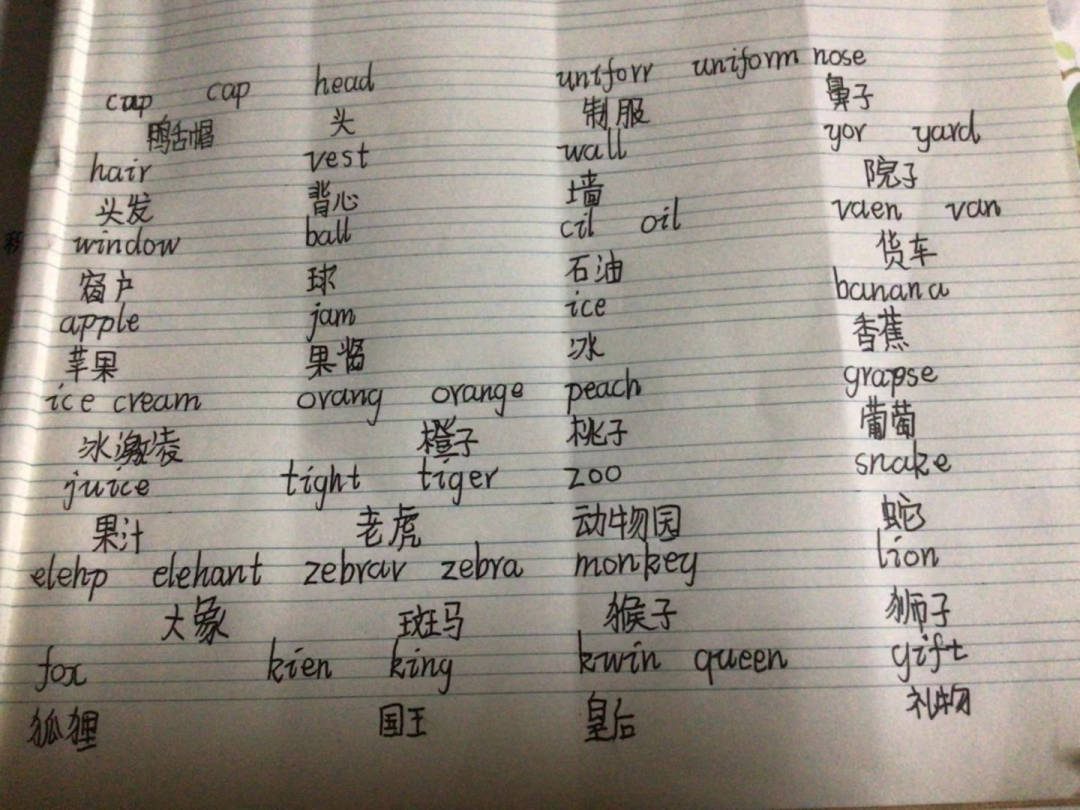 cup cap head untforr uniform nose
鸭舌帽 头 制服 鼻子
hair vest wall yor yard
头发 背心 墙 院子
window ball cil oil vaen van
窗户 球 石油 货车
apple jam ice banana
苹果 果酱 冰 香蕉
ice cream orang orange peach grapse
冰激凌 橙子 桃子 葡萄
juice tight tiger zoo snake
果汁 老虎 动物园 蛇
elehp elehant zebrar zebra monkey lion
大象 斑马 猴子 狮子
fox kien king kwin queen gift
狐狸 国王 皇后 礼物